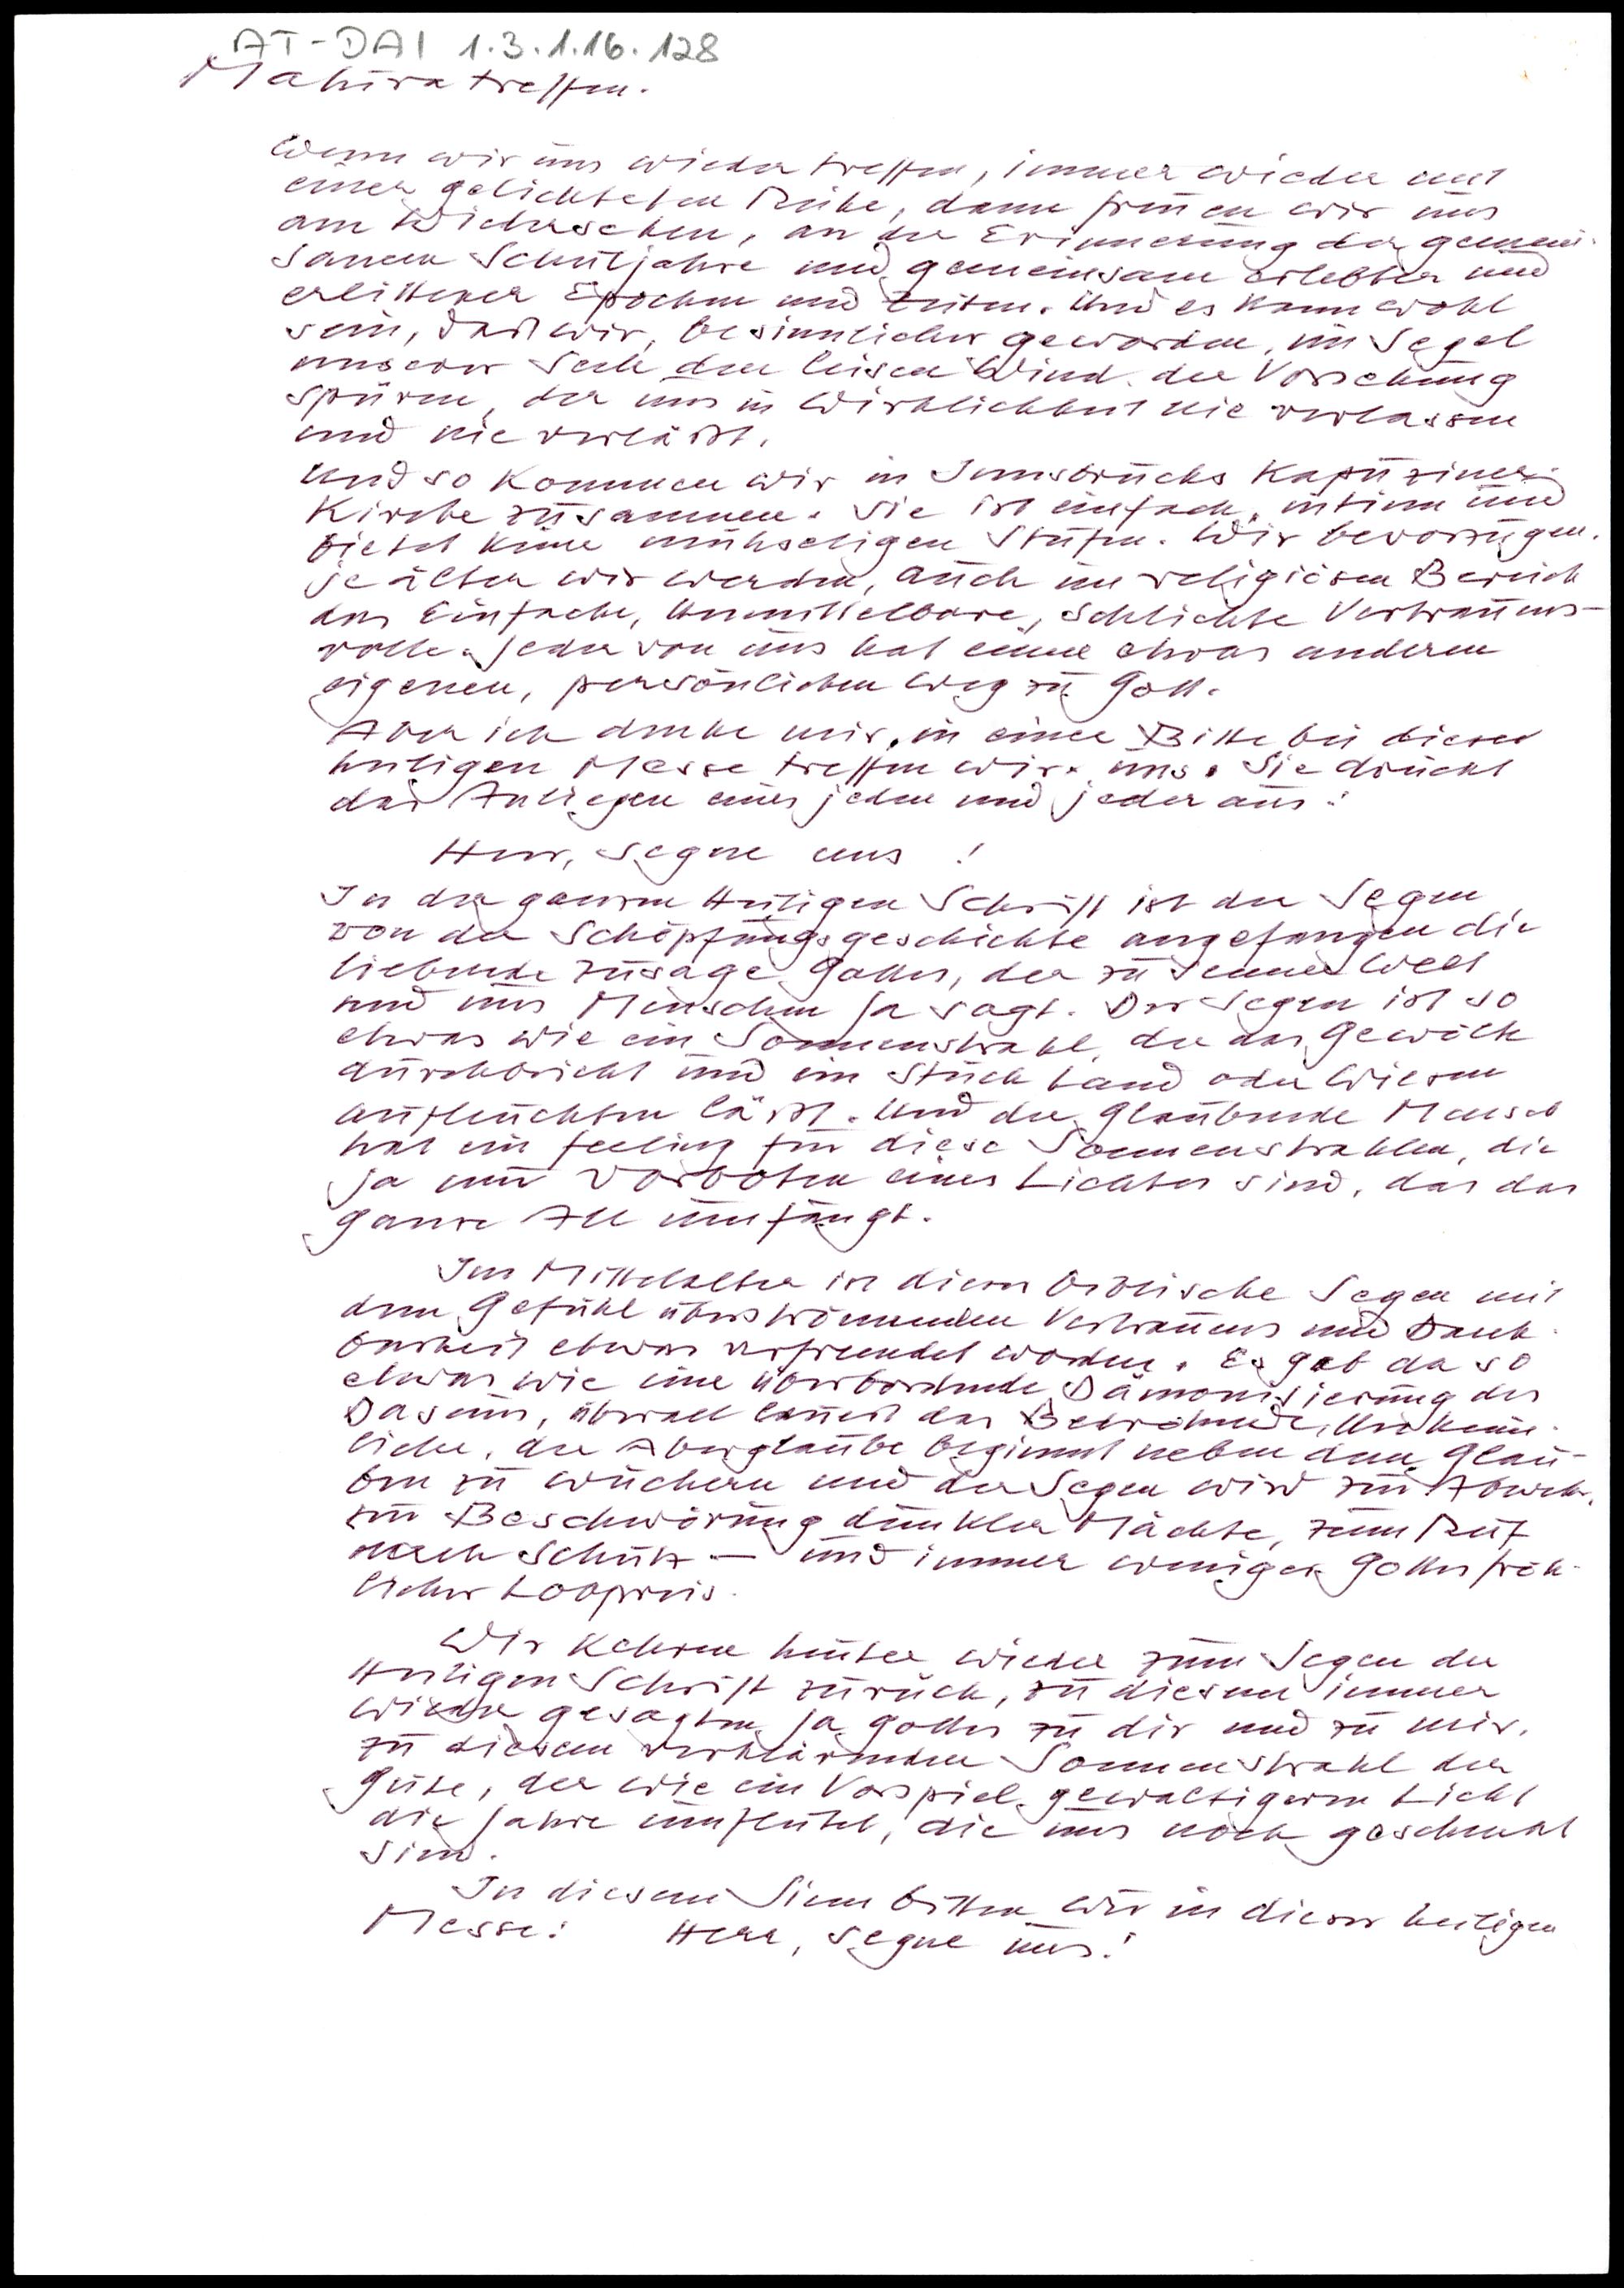 AT-DAI 1.3.1.16.128
Maturatreffen.
Wenn wir uns wieder treffen, immer wieder mit
einer gelichteten Reihe, dann freuen wir uns
am Wiedersehen, an der Erinnerung der gemein-
samen Schuljahre und gemeinsam erlebter und
erlittener Epochen und Zeiten. Und es kann wohl
sein, daß wir, besinnlicher geworden, im Segel
unserer Seele den leisen Wind der Vorsehung
spüren, der uns in Wirklichkeit nie verlassen
und nie verläßt.
Und so kommen wir in Innsbrucks Kapuziner-
Kirche zusammen. Sie ist einfach, intim und
bietet keine mühseligen Stufen. Wir bevorzugen,
je älter wir werden, auch im religiösen Bereich
das Einfache, Unmittelbare, schlichte Vertrauens-
volle. Jeder von uns hat einen etwas anderen
eigenen, persönlichen Weg zu Gott.
Aber ich denke mir, in einer Bitte bei dieser
heiligen Messe treffen wir uns. Sie drückt
das Anliegen eines jeden und jeder aus:
Herr, segne uns!
In der ganzen Heiligen Schrift ist der Segen
von der Schöpfungsgeschichte angefangen die
liebende Zusage Gottes, der zu seiner Welt
und uns Menschen Ja sagt. Der Segen ist so
etwas wie ein Sonnenstrahl, der das Gewölk
durchbricht und ein Stück Land oder Wiesen
aufleuchten läßt. Und der glaubende Mensch
hat ein feeling für diese Sonnenstrahlen, die
ja nur Vorboten eines Lichtes sind, das das
ganze All umfängt.
Im Mittelalter ist dieser biblische Segen mit
dem Gefühl überströmenden Vertrauens und Dank-
barkeit etwas verfremdet worden. Es gab da so
etwas wie eine überbordende Dämonisierung des
Daseins, überall lauert das Bedrohende, Unheim-
liche, der Aberglaube beginnt neben dem Glau-
ben zu wuchern und der Segen wird zur Abwehr,
zur Beschwörung dunkler Mächte, zum Ruf
nach Schutz — und immer weniger Gottes fröh-
licher Lobpreis.
Wir kehren heute wieder zum Segen der
Heiligen Schrift zurück, zu diesem immer
wieder gesagten Ja Gottes zu dir und zu mir,
zu diesem verklärenden Sonnenstrahl der
Güte, der wie ein Vorspiel gewaltigeren Licht
die Jahre umflutet, die uns noch geschenkt
sind.
In diesem Sinn bitten wir in dieser heiligen
Messe: Herr, segne uns!